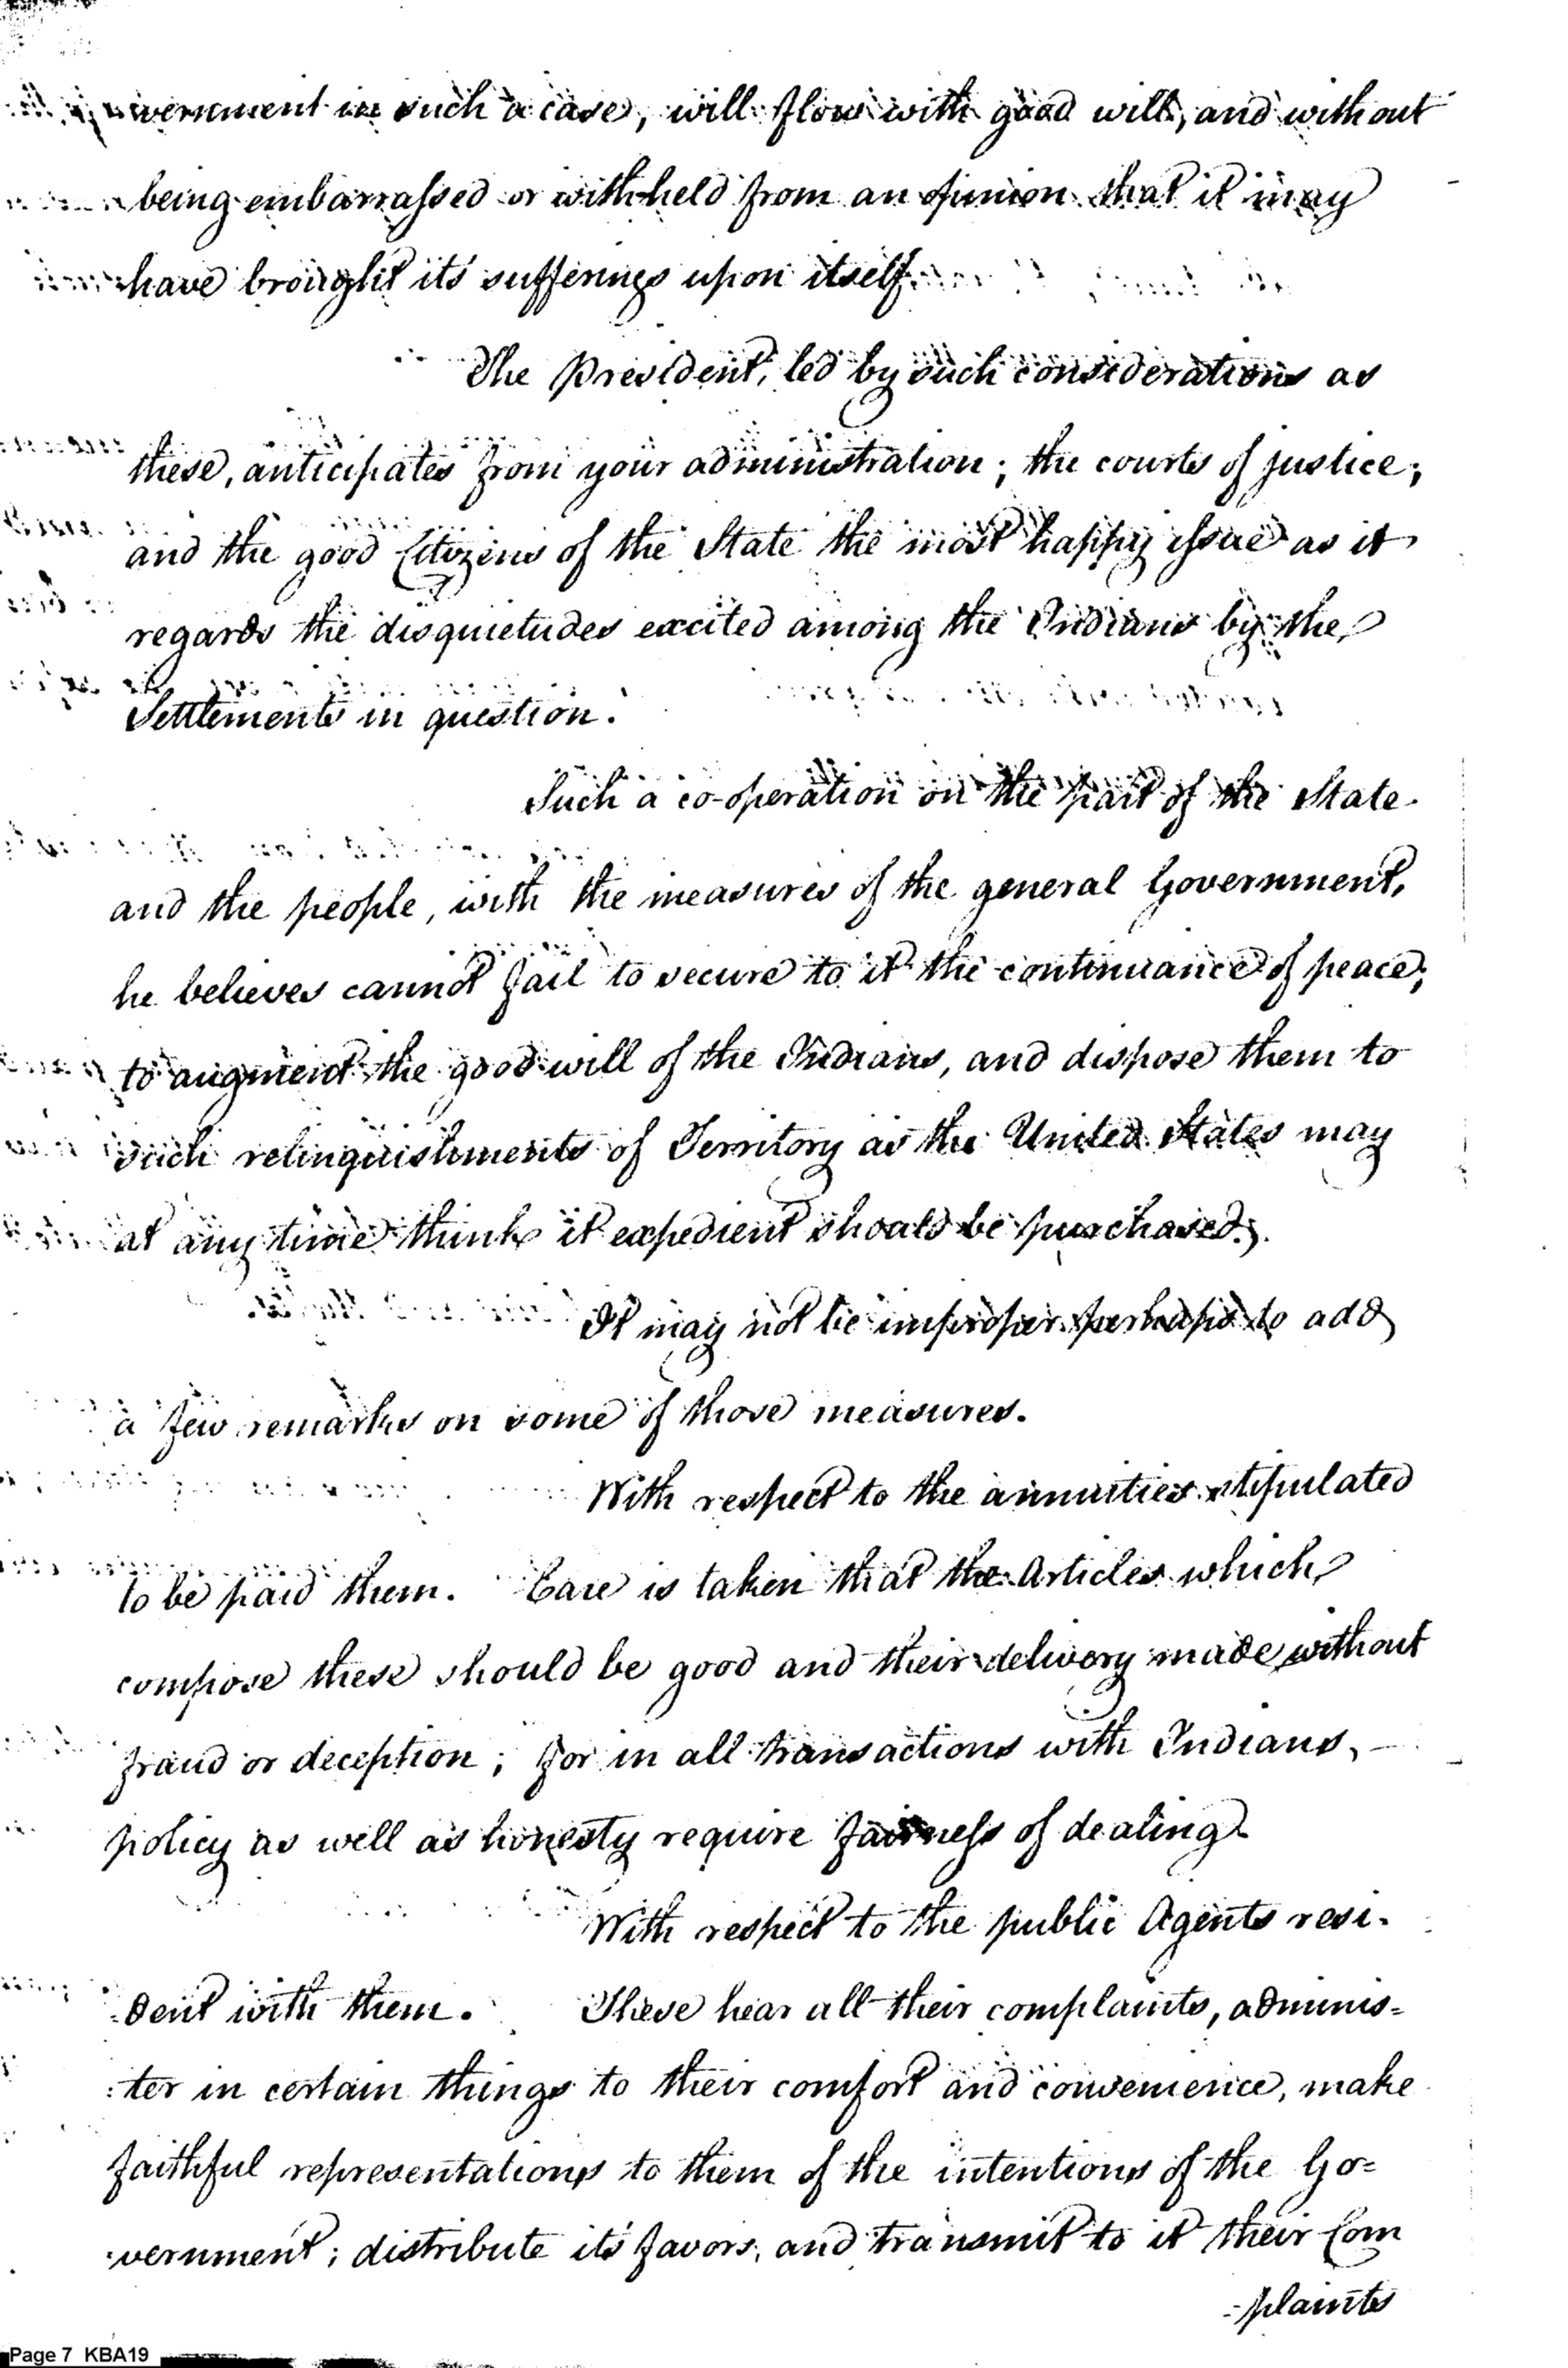 :vernment in such a case, will flow with good will, and without
being embarrassed or withheld from an opinion that it may
have brought it's sufferings upon itself.
The President, led by such considerations as
these, anticipates from your administration; the courts of justice;
and the good Citizens of the State the most happy issue as it
regards the disquietudes excited among the Indians by the
Settlements in question.
Such a co-operation on the part of the State
and the people, with the measures of the general Government,
he believes cannot fail to secure to it the continuance of peace;
to augment the good will of the Indians, and dispose them to
such relinquishments of Territory as the United States may
at any time think it expedient should be purchased.
It may not be improper perhaps to add
a few remarks on some of those measures.
With respect to the annuities stipulated
to be paid them. Care is taken that the Articles which
compose these should be good and their delivery made without
fraud or deception; for in all transactions with Indians,
policy as well as honesty require fairness of dealing.
With respect to the public Agents resi-
:dent with them. These hear all their complaints, adminis=
:ter in certain things to their comfort and convenience, make
faithful representations to them of the intentions of the Go=
:vernment; distribute it's favors, and transmit to it their Com
-plaints
Page 7 KBA19